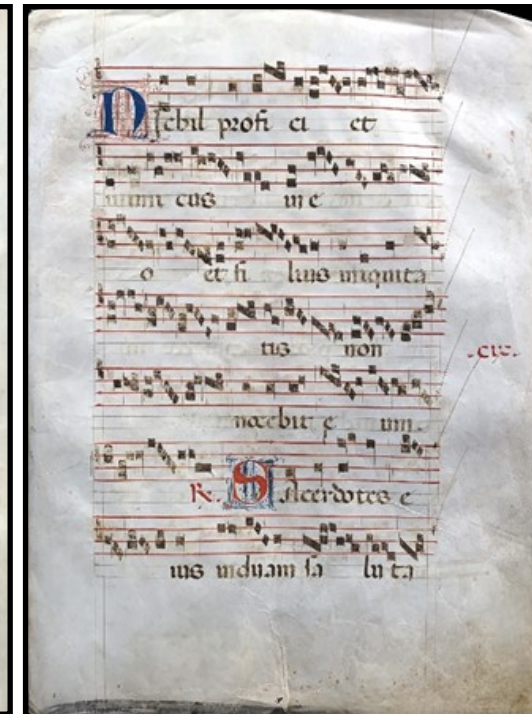 Nichil profi ci et
inimi cus in e
o et fi lius iniquita
tis non
nocebit e
℟. Sacerdotes e
ius induam sa lu ta